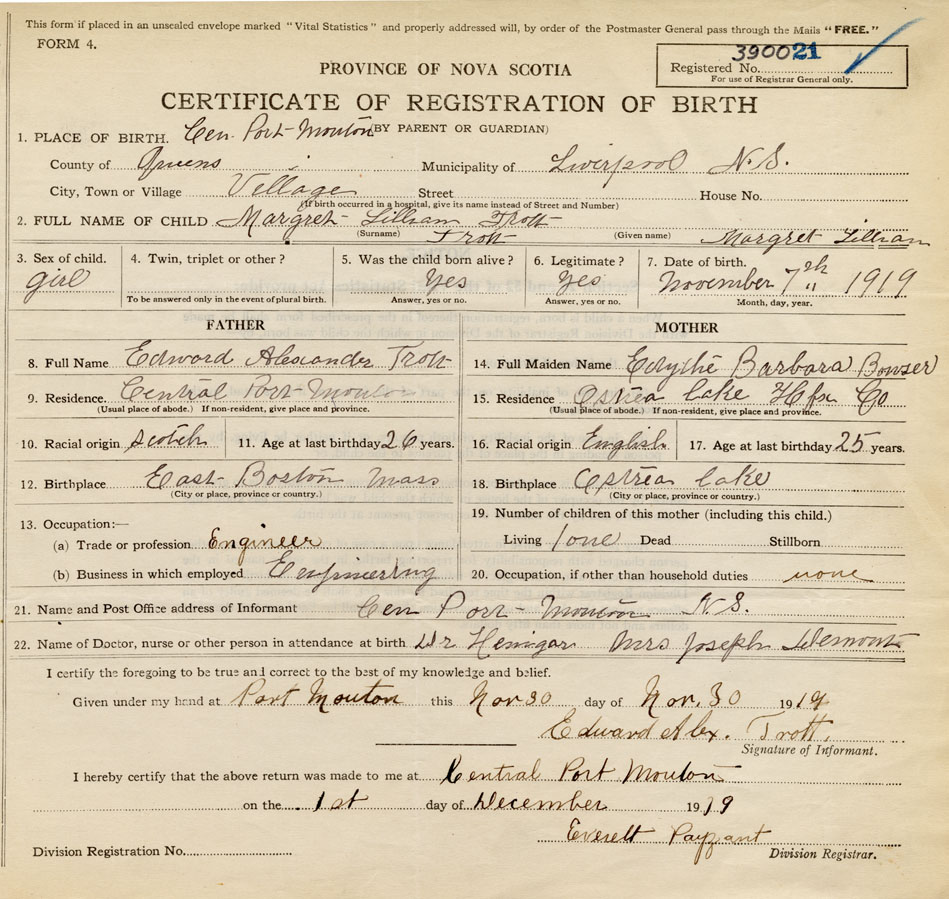 This form if placed in an unsealed envelope marked "Vital Statistics" and properly addressed will, by order of the Postmaster General pass through the Mails "FREE."
FORM 4.
390021
Registered No.
For use of Registrar General only.
PROVINCE OF NOVA SCOTIA
CERTIFICATE OF REGISTRATION OF BIRTH
(BY PARENT OR GUARDIAN)
1. PLACE OF BIRTH. Cen. Port Mouton
County of Queens Municipality of Liverpool N.S.
City, Town or Village Village Street House No.
(If birth occurred in a hospital, give its name instead of Street and Number)
2. FULL NAME OF CHILD Margret Lilliam Trott
(Surname) Trott (Given name) Margret Lillian
3. Sex of child. 4. Twin, triplet or other? 5. Was the child born alive? 6. Legitimate? 7. Date of birth.
girl Yes Yes November 7th 1919
To be answered only in the event of plural birth. Answer, yes or no. Answer, yes or no. Month, day, year.
FATHER MOTHER
8. Full Name Edword Alexander Trott 14. Full Maiden Name Edythe Barbara Bowser
9. Residence. Central Port Mouton 15. Residence Ostrea Lake Hfx Co
(Usual place of abode.) If non-resident, give place and province. (Usual place of abode.) If non-resident, give place and province.
10. Racial origin Scotch 11. Age at last birthday 26 years. 16. Racial origin English 17. Age at last birthday 25 years.
12. Birthplace East Boston Mass 18. Birthplace Ostrea Lake
(City or place, province or country.) (City or place, province or country.)
13. Occupation:— 19. Number of children of this mother (including this child.)
(a) Trade or profession Engineer Living 1 one Dead Stillborn
(b) Business in which employed Enginering 20. Occupation, if other than household duties none
21. Name and Post Office address of Informant Cen Port Mouton N.S.
22. Name of Doctor, nurse or other person in attendance at birth Dr Hennigar Mrs Joseph Demont
I certify the foregoing to be true and correct to the best of my knowledge and belief.
Given under my hand at Port Mouton this Nov 30 day of Nov. 30 1919
Edward Alex. Trott.
Signature of Informant.
I hereby certify that the above return was made to me at Central Port Mouton
on the 1st day of December 1919
Everett Payzant
Division Registration No. Division Registrar.